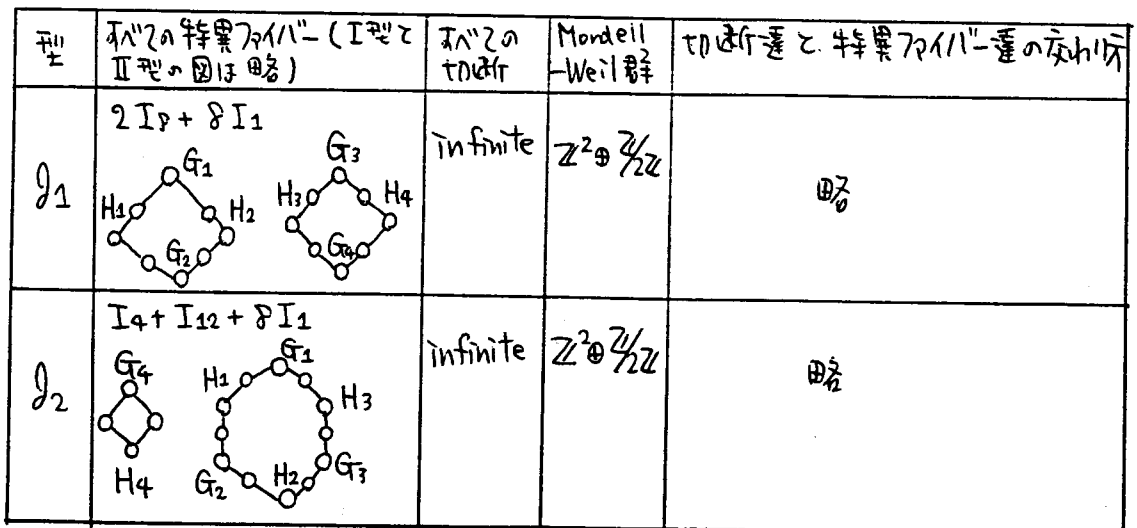 型
すべての特異ファイバー(I型と
II型の図は略)
すべての
切断
Mordell
-Weil群
切断達と、特異ファイバー達の交わり方
J1
2I8 + 8I1
G1
H1
H2
G2
G3
H3
H4
G4
infinite
ℤ²⊕ℤ/2ℤ
略
J2
I4 + I12 + 8I1
G4
H4
G1
H1
H3
G2
H2
G3
infinite
ℤ²⊕ℤ/2ℤ
略